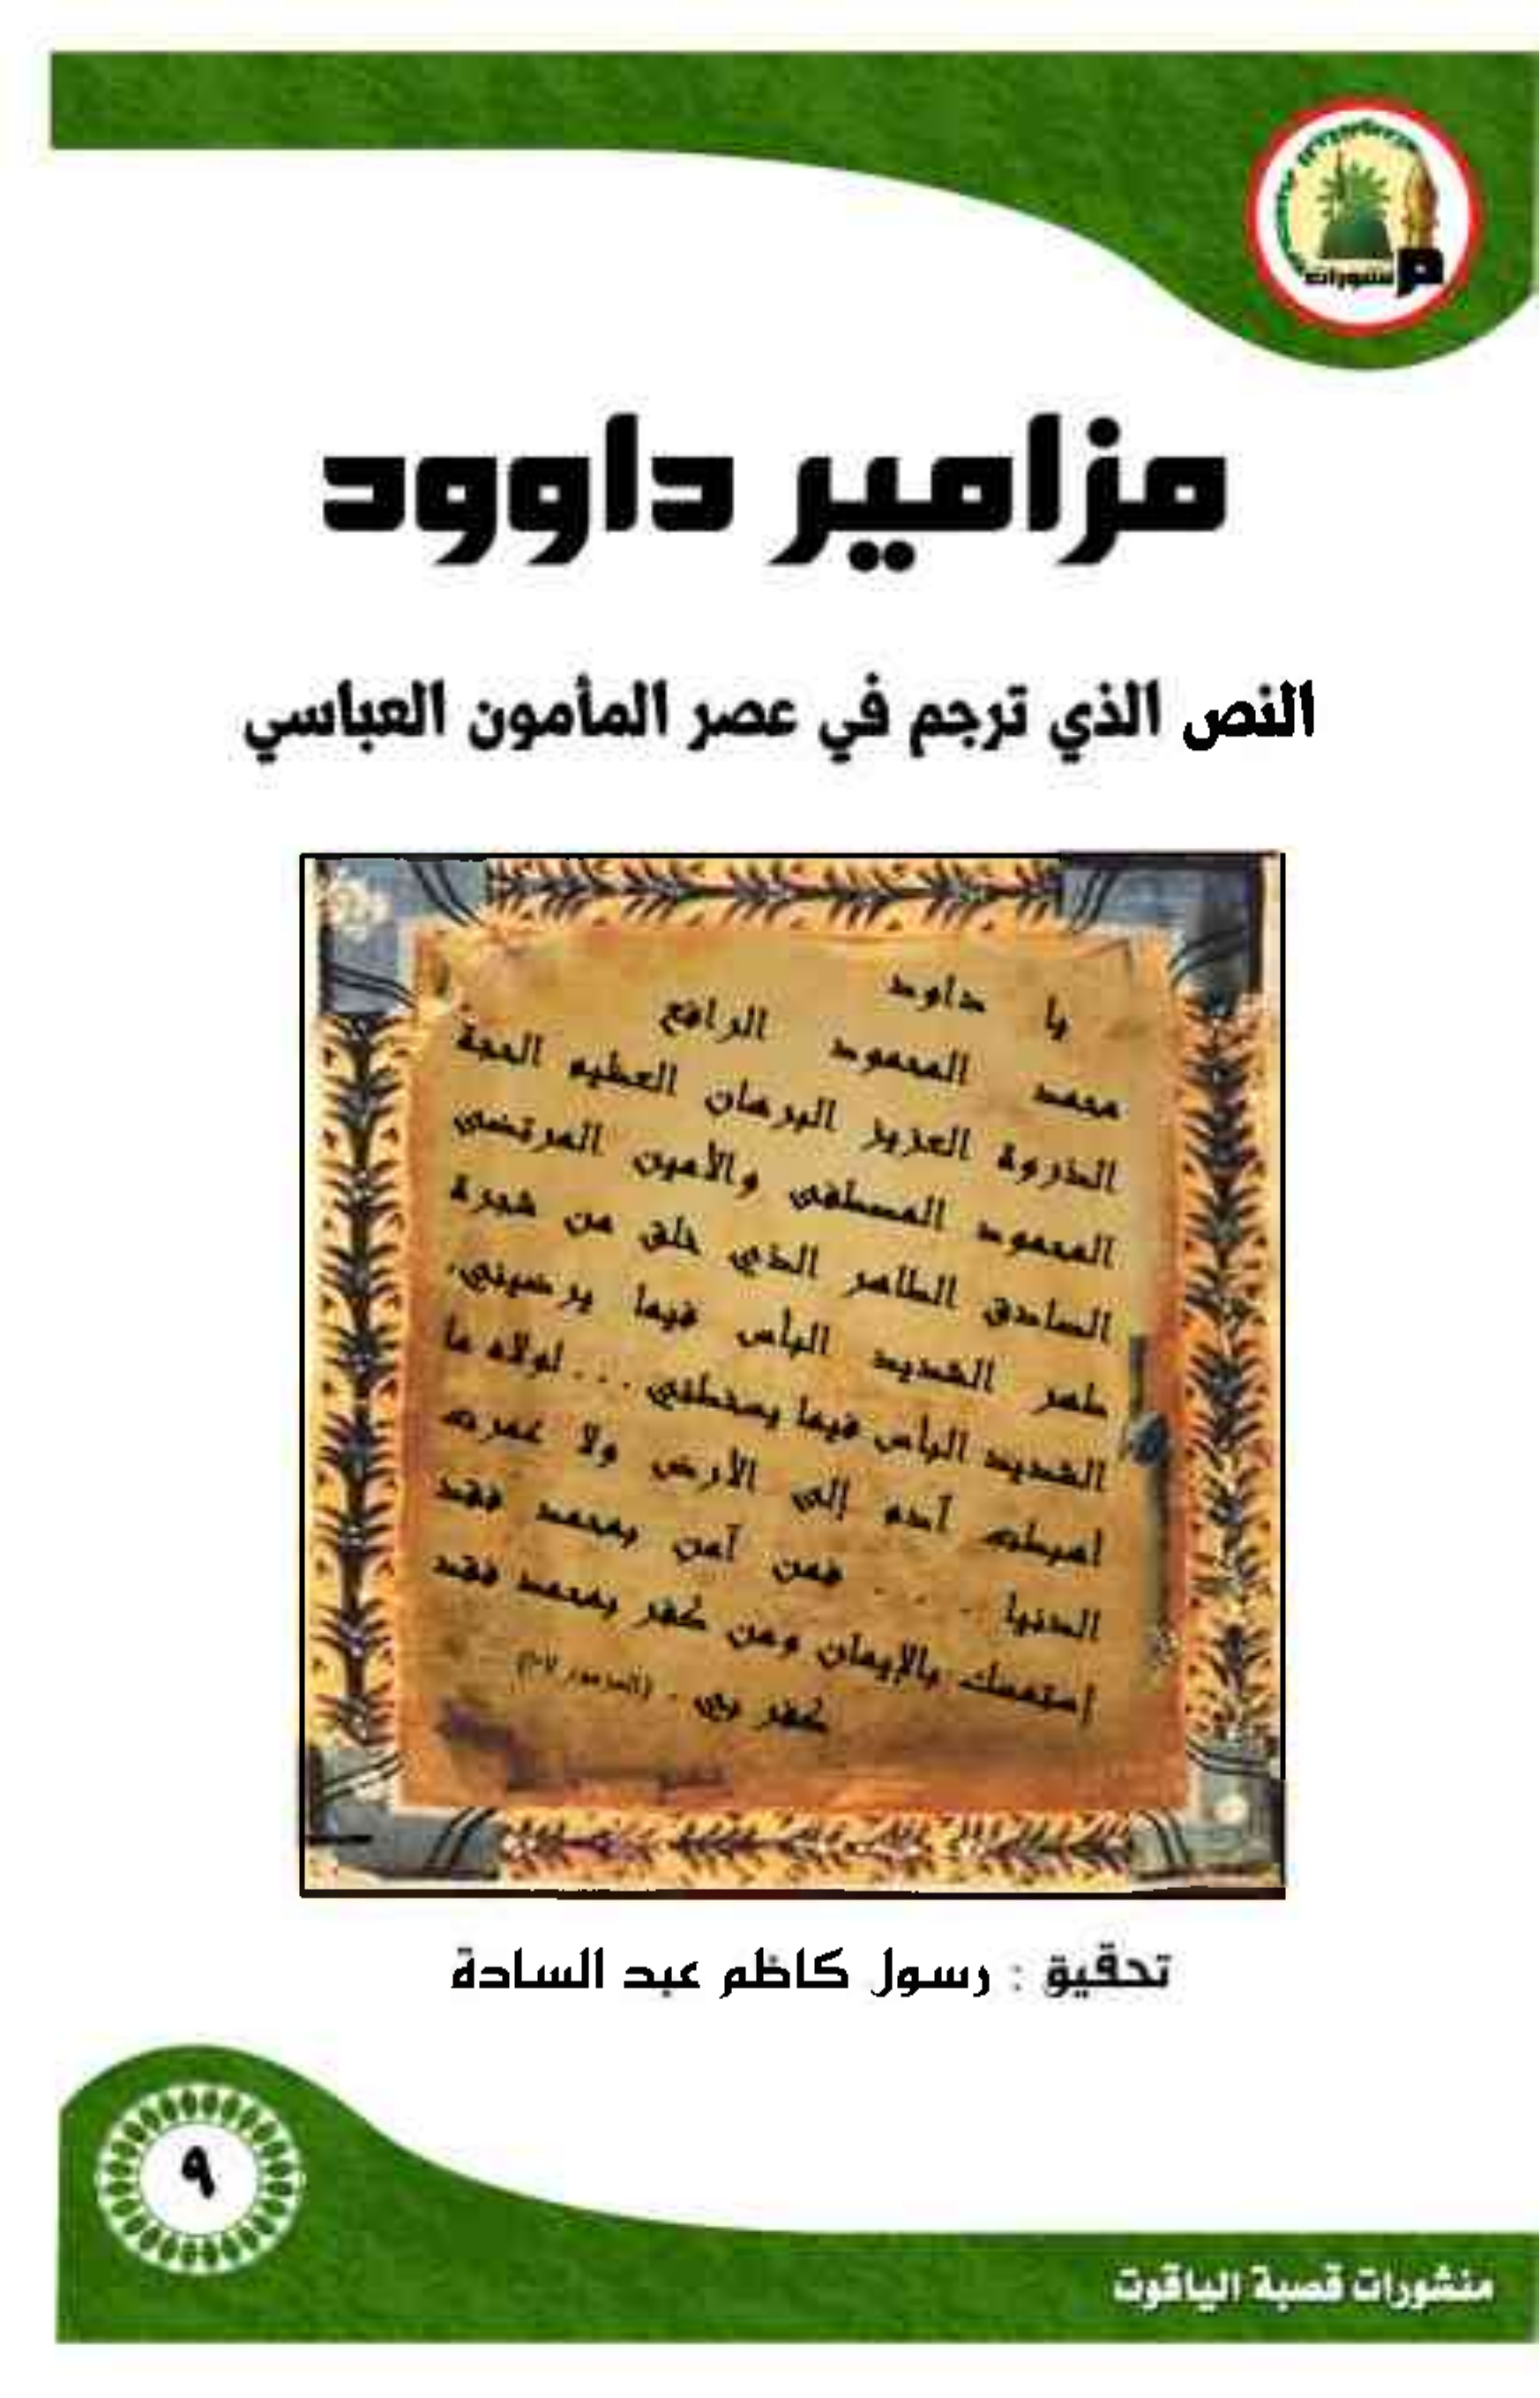 منشورات
مزامير داوود
النص الذي ترجم في عصر المأمون العباسي
يا داود
محمد المحمود الرافع
الذروة العزيز البرهان العظيم الحجة
المحمود المصطفى والأمين المرتضى
الصادق الطاهر الذي خلق من شجرة
طهر الشديد البأس فيما يرضيني،
الشديد البأس فيما يسخطني ... لولاه ما
اهبطت آدم إلى الأرض ولا عمرت
الدنيا ... فمن آمن بمحمد فقد
إستمسك بالإيمان ومن كفر بمحمد فقد
كفر بي .
تحقيق : رسول كاظم عبد السادة
٩
منشورات قصبة الياقوت